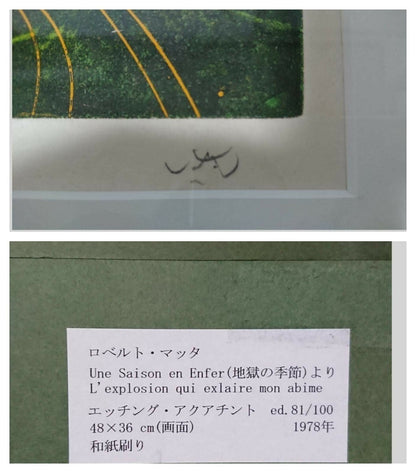 ロベルト・マッタ
Une Saison en Enfer(地獄の季節)より
L'explosion qui exlaire mon abime
エッチング・アクアチント ed.81/100
48×36 cm(画面) 1978年
和紙刷り